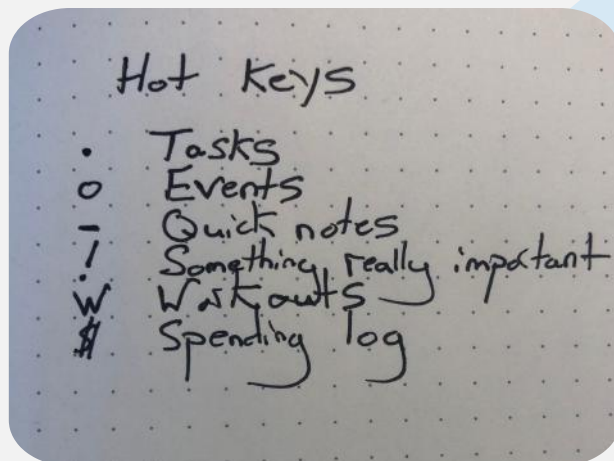 Hot Keys
• Tasks
o Events
– Quick notes
! Something really important
W Workouts
$ Spending log